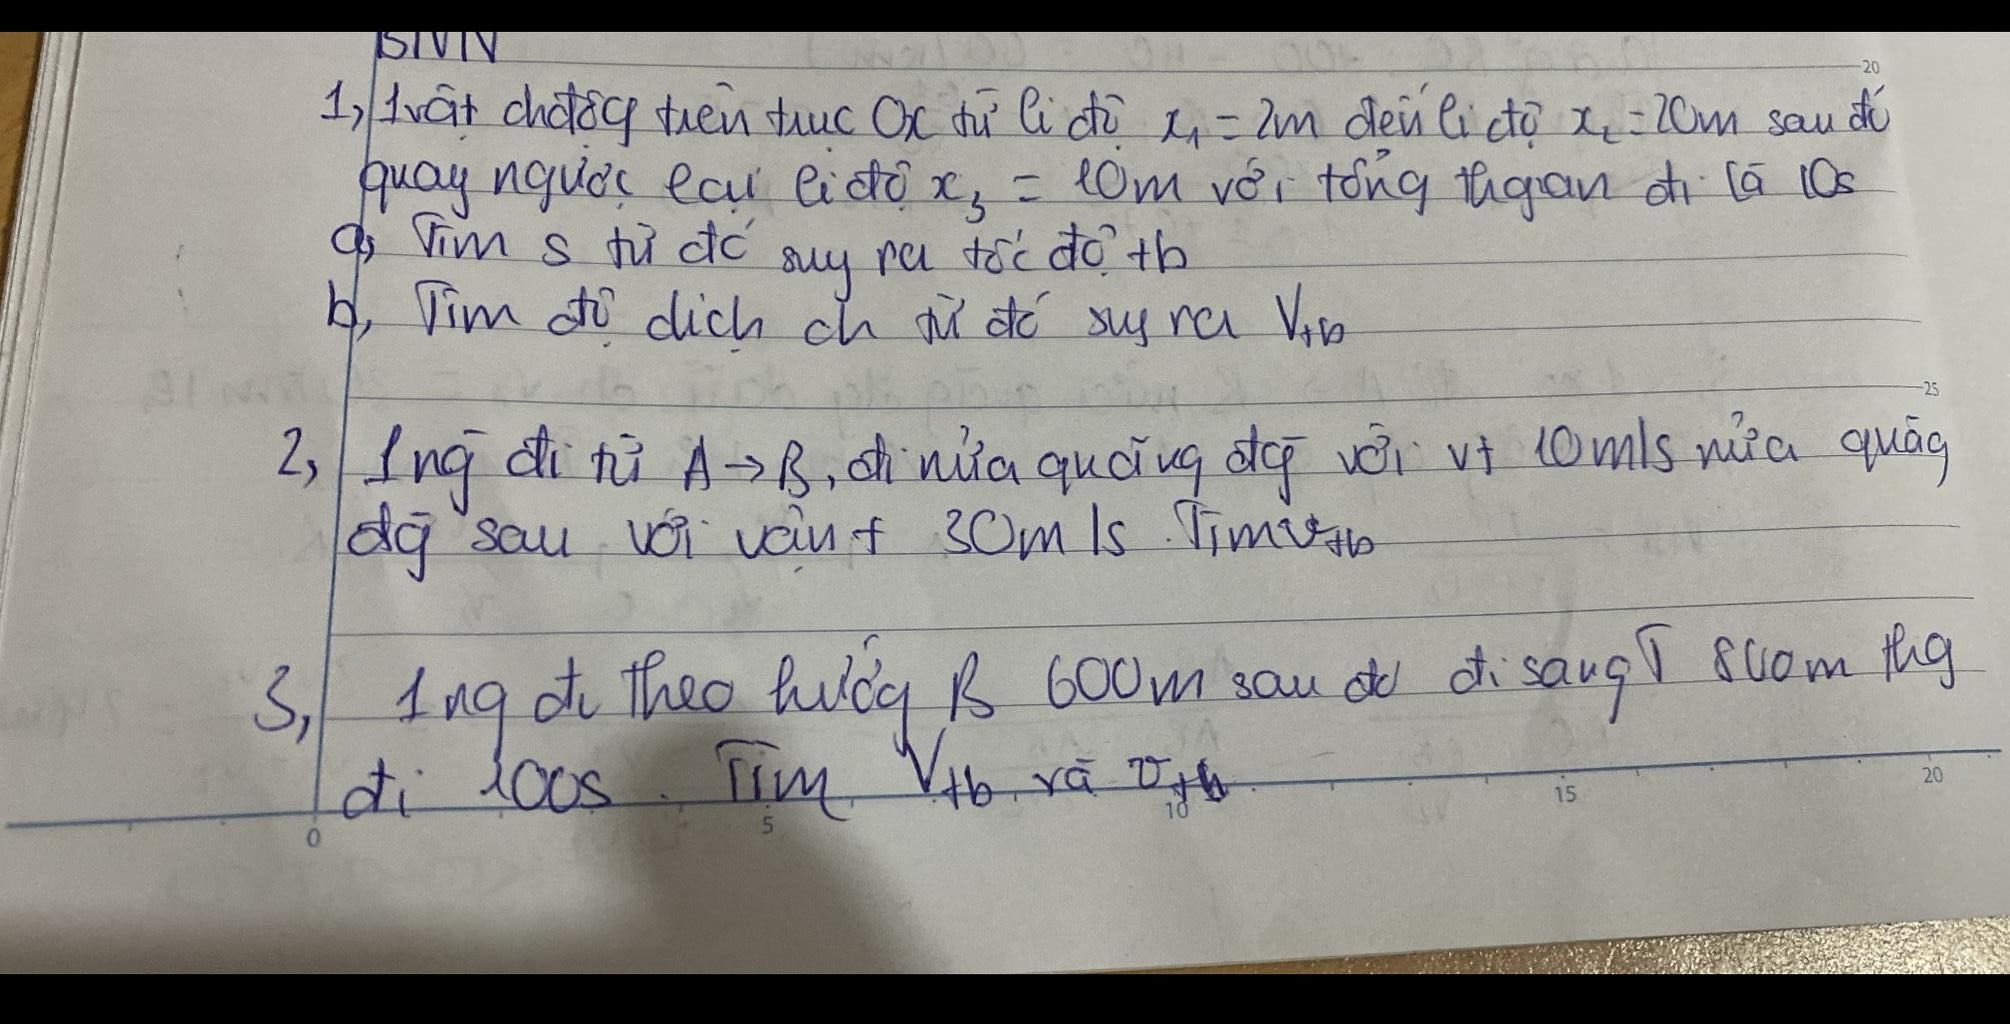 BTVN
20
1, 1 vật chđộg trên trục Ox từ li độ x₁ = 2m đến li độ x₂ = 20m sau đó
quay ngược lại li độ x₃ = 10m với tổng thgian đi là 10s
a, Tìm s từ đó suy ra tốc độ tb
b, Tìm độ dịch ch từ đó suy ra Vtb
25
2, 1 ng đi từ A → B, đi nửa quãng đg với vt 10m/s nửa quãg
đg sau với vận t 30m/s. Tìm vtb
3, 1 ng đi theo hướg B 600m sau đó đi sang T 800m thg
đi 100s. Tìm Vtb và vtb
0 5 10 15 20